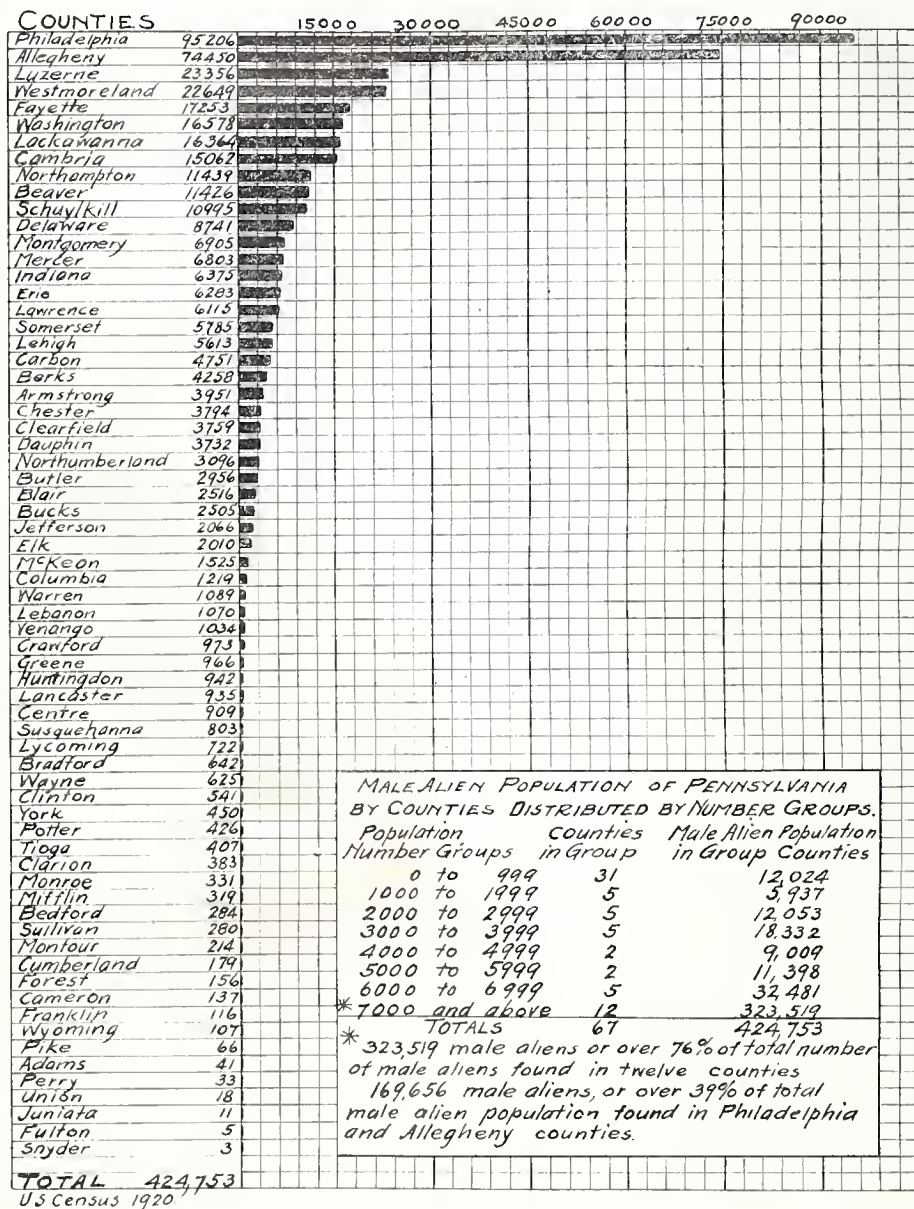 COUNTIES 15000 30000 45000 60000 75000 90000
Philadelphia 95206
Allegheny 74450
Luzerne 23356
Westmoreland 22649
Fayette 17253
Washington 16578
Lackawanna 16364
Cambria 15062
Northampton 11439
Beaver 11426
Schuylkill 10995
Delaware 8741
Montgomery 6905
Mercer 6803
Indiana 6375
Erie 6283
Lawrence 6115
Somerset 5785
Lehigh 5613
Carbon 4751
Berks 4258
Armstrong 3951
Chester 3794
Clearfield 3759
Dauphin 3732
Northumberland 3096
Butler 2956
Blair 2516
Bucks 2505
Jefferson 2066
Elk 2010
McKeon 1525
Columbia 1219
Warren 1089
Lebanon 1070
Venango 1034
Crawford 973
Greene 966
Huntingdon 942
Lancaster 935
Centre 909
Susquehanna 803
Lycoming 722
Bradford 642
Wayne 625
Clinton 541
York 450
Potter 426
Tioga 407
Clarion 383
Monroe 331
Mifflin 319
Bedford 284
Sullivan 280
Montour 214
Cumberland 179
Forest 156
Cameron 137
Franklin 116
Wyoming 107
Pike 66
Adams 41
Perry 33
Union 18
Juniata 11
Fulton 5
Snyder 3
TOTAL 424,753
US Census 1920
MALE ALIEN POPULATION OF PENNSYLVANIA
BY COUNTIES DISTRIBUTED BY NUMBER GROUPS.
Population Counties Male Alien Population
Number Groups in Group in Group Counties
0 to 999 31 12,024
1000 to 1999 5 5,937
2000 to 2999 5 12,053
3000 to 3999 5 18,332
4000 to 4999 2 9,009
5000 to 5999 2 11,398
6000 to 6999 5 32,481
*7000 and above 12 323,519
TOTALS 67 424,753
* 323,519 male aliens or over 76% of total number
of male aliens found in twelve counties
169,656 male aliens, or over 39% of total
male alien population found in Philadelphia
and Allegheny counties.